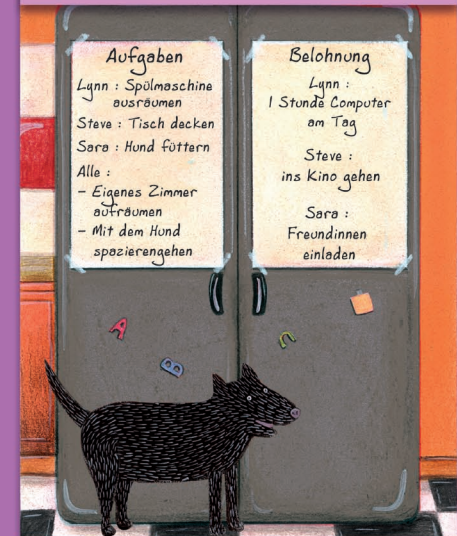 Aufgaben
Lynn : Spülmaschine
ausräumen
Steve : Tisch decken
Sara : Hund füttern
Alle :
– Eigenes Zimmer
aufräumen
– Mit dem Hund
spazierengehen
Belohnung
Lynn :
1 Stunde Computer
am Tag
Steve :
ins Kino gehen
Sara :
Freundinnen
einladen
A
B
C